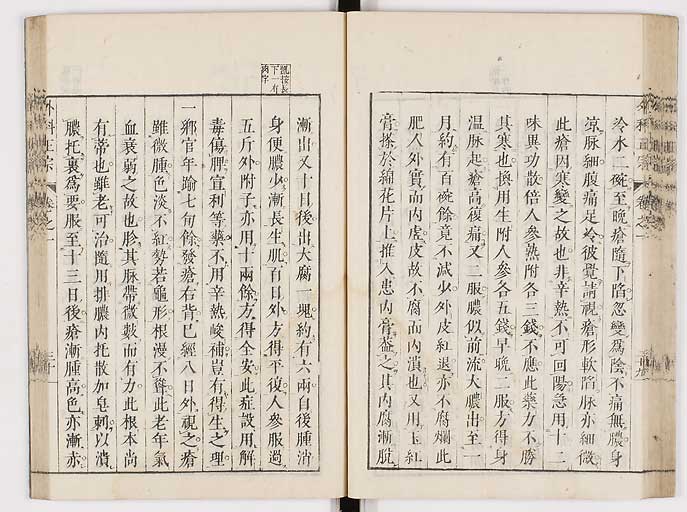 冷水二碗至晚瘡隨下陷忽變爲陰不痛無膿身
涼脉細腹痛足冷彼覺請視瘡形軟陷脉亦細微
此瘡因寒變之故也非辛熱不可回陽急用十二
味異功散倍人參熟附各三錢不應此藥力不勝
其寒也換用生附人參各五錢早晚二服方得身
温脉起瘡高復痛又二服膿似前流大膿出至一
月約有百碗餘竟不減少外皮紅退亦不腐爛此
肥人外實而内虛皮故不腐而内潰也又用玉紅
膏搽於綿花片上推入患内膏蓋之其内腐漸脱
漸出又十日後出大腐一塊約有六兩自後腫消
身便膿少漸長生肌百日外方得平復人參服過
五斤外附子亦用十兩餘方得全安此症設用解
毒傷脾宣利等藥不用辛熱峻補豈有得生之理
一鄉官年踰七旬餘發瘡右背巳經八日外視之瘡
雖微腫色淡不紅勢若龜形根漫不聳此老年氣
血衰弱之故也胗其脉帶微數而有力此根本尚
有蒂也雖老可治隨用排膿内托散加皂刺以潰
膿托裏爲要服至十三日後瘡漸腫高色亦漸赤
外科正宗
卷之一